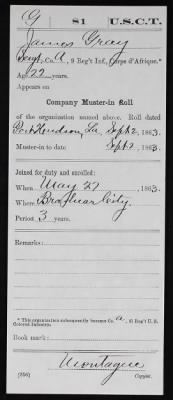 G 81 U.S.C.T.
James Gray
Sergt, Co. A, 9 Reg't Inf., Corps d'Afrique.*
Age 22 years.
Appears on
Company Muster-in Roll
of the organization named above. Roll dated
Port Hudson, La, Sept 2, 1863.
Muster-in to date Sept 2, 1863.
Joined for duty and enrolled:
When May 27, 1863.
Where Brashear City.
Period 3 years.
Remarks:
*This organization subsequently became Co. A, 81 Reg't U. S.
Colored Infantry.
Book mark:
Montague
(356) Copyist.